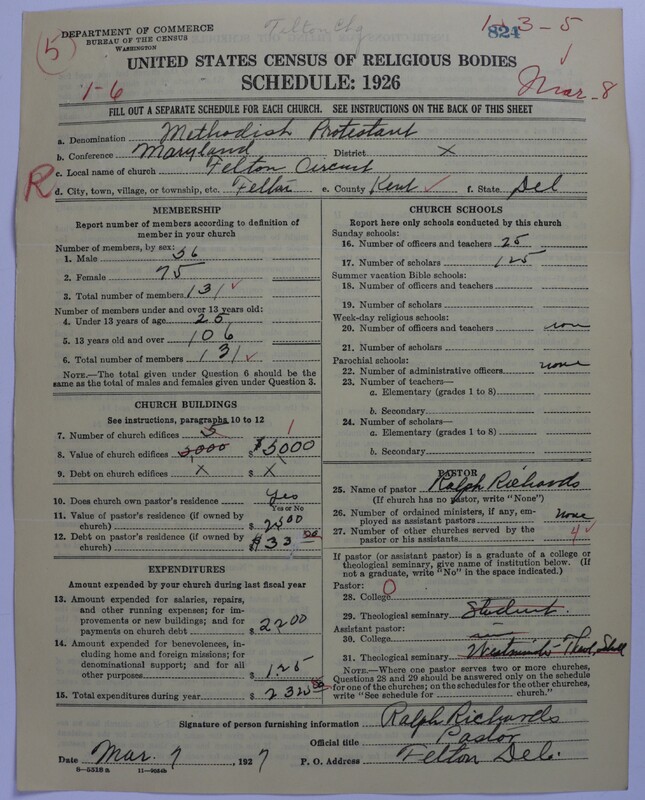 DEPARTMENT OF COMMERCE
BUREAU OF THE CENSUS
WASHINGTON
(5)
Felton Chg
824
1-3-5
UNITED STATES CENSUS OF RELIGIOUS BODIES
SCHEDULE: 1926
1-6
Mar-8
FILL OUT A SEPARATE SCHEDULE FOR EACH CHURCH. SEE INSTRUCTIONS ON THE BACK OF THIS SHEET
a. Denomination Methodish Protestant
b. Conference Maryland District X
c. Local name of church Felton Circuit
R
d. City, town, village, or township, etc. Felton e. County Kent ✓ f. State Del
MEMBERSHIP
Report number of members according to definition of member in your church
Number of members, by sex:
1. Male 56
2. Female 75
3. Total number of members 131 ✓
Number of members under and over 13 years old:
4. Under 13 years of age 25
5. 13 years old and over 106
6. Total number of members 131 ✓
NOTE.—The total given under Question 6 should be the same as the total of males and females given under Question 3.
CHURCH BUILDINGS
See instructions, paragraphs 10 to 12
7. Number of church edifices 5 1
8. Value of church edifices 5000 $5000
9. Debt on church edifices X $ X
10. Does church own pastor's residence Yes
Yes or No
11. Value of pastor's residence (if owned by church) $ 2500
12. Debt on pastor's residence (if owned by church) $ 33 00
EXPENDITURES
Amount expended by your church during last fiscal year
13. Amount expended for salaries, repairs, and other running expenses; for improvements or new buildings; and for payments on church debt $ 2200
14. Amount expended for benevolences, including home and foreign missions; for denominational support; and for all other purposes $ 125
15. Total expenditures during year $ 2325 00
CHURCH SCHOOLS
Report here only schools conducted by this church
Sunday schools:
16. Number of officers and teachers 25
17. Number of scholars 125
Summer vacation Bible schools:
18. Number of officers and teachers
19. Number of scholars
Week-day religious schools:
20. Number of officers and teachers none
21. Number of scholars
Parochial schools:
22. Number of administrative officers none
23. Number of teachers—
a. Elementary (grades 1 to 8)
b. Secondary
24. Number of scholars—
a. Elementary (grades 1 to 8)
b. Secondary
PASTOR
25. Name of pastor Ralph Richards
(If church has no pastor, write "None")
26. Number of ordained ministers, if any, employed as assistant pastors none
27. Number of other churches served by the pastor or his assistants 4 ✓
If pastor (or assistant pastor) is a graduate of a college or theological seminary, give name of institution below. (If not a graduate, write "No" in the space indicated.)
Pastor: 0
28. College
29. Theological seminary Student
Assistant pastor:
30. College in
31. Theological seminary Westminster Theol. School
NOTE.—Where one pastor serves two or more churches, Questions 28 and 29 should be answered only on the schedule for one of the churches; on the schedules for the other churches, write "See schedule for church."
Signature of person furnishing information Ralph Richards
Official title Pastor
Date Mar. 7, 1927 P. O. Address Felton Del.
8-5518a 11-9664b